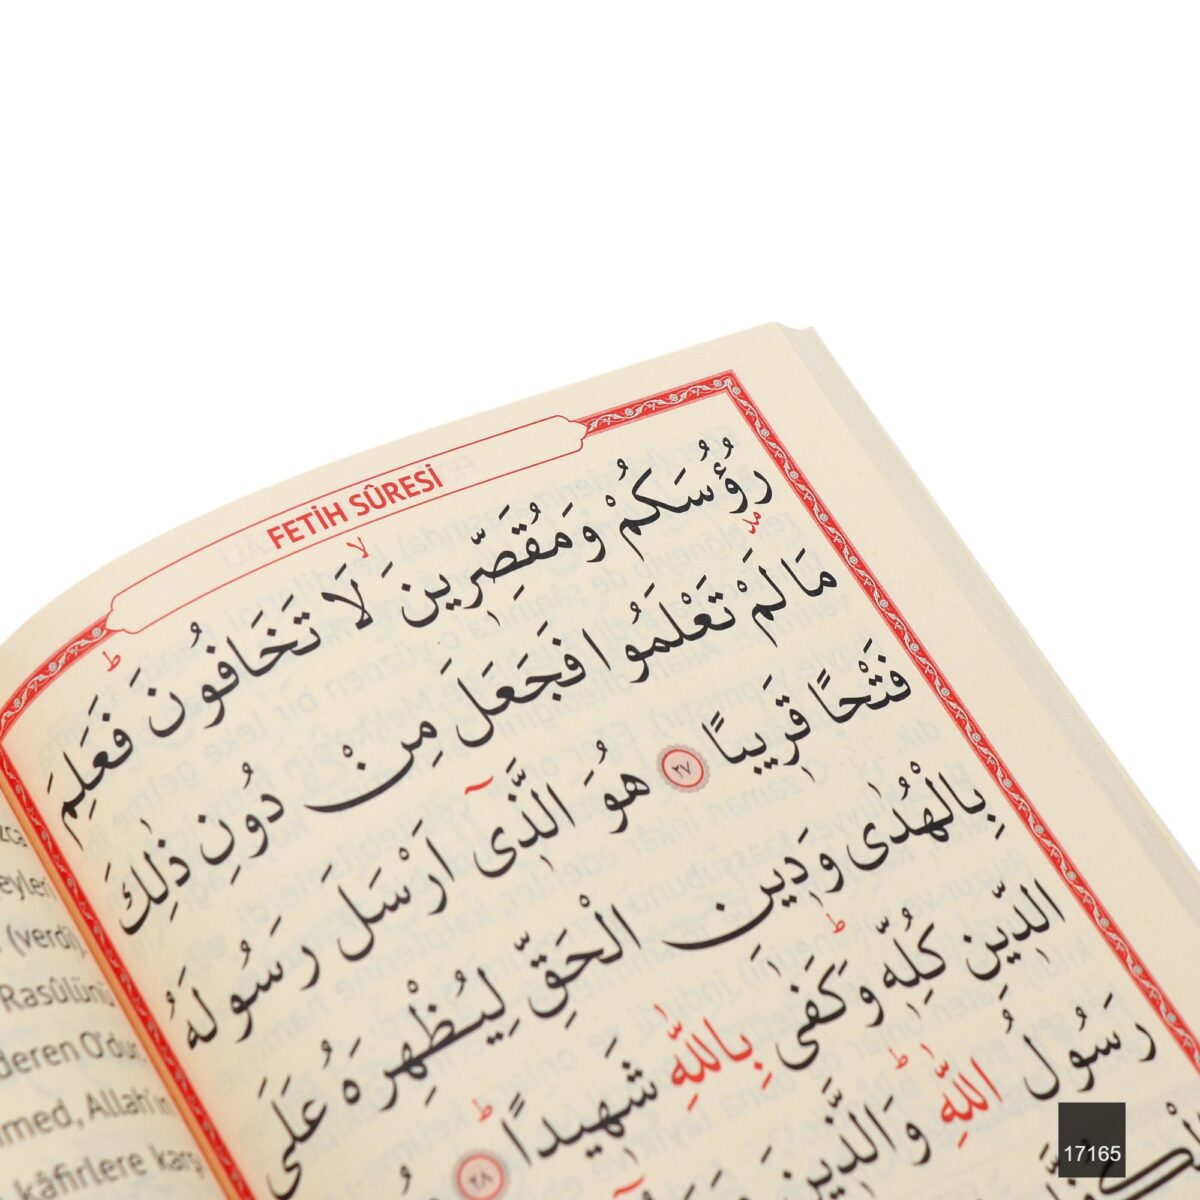 FETİH SÛRESİ
رُؤُسَكُمْ وَمُقَصِّرِينَ لَا تَخَافُونَ فَعَلِمَ
مَا لَمْ تَعْلَمُوا فَجَعَلَ مِنْ دُونِ ذٰلِكَ
فَتْحًا قَرِيبًا ٢٧ هُوَ الَّذِى اَرْسَلَ رَسُولَهُ
بِالْهُدٰى وَدِينِ الْحَقِّ لِيُظْهِرَهُ عَلَى
الدِّينِ كُلِّهِ وَكَفٰى بِاللّٰهِ شَهِيدًا ٢٨
رَسُولُ اللّٰهِ وَالَّذِينَ
(verdi).
Rasûlünü
deren O'dur.
med, Allah'ın
kâfirlere karşı
17165